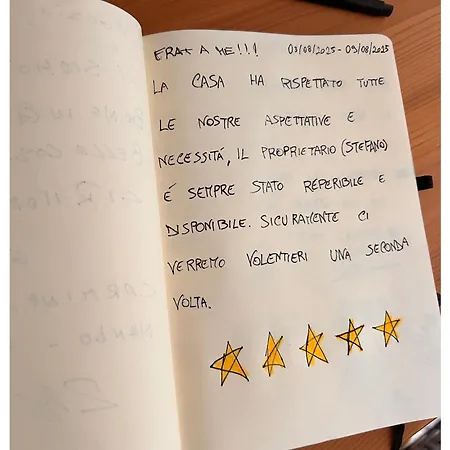 03/08/2025 - 09/08/2025
LA CASA HA RISPETTATO TUTTE
LE NOSTRE ASPETTATIVE E
NECESSITÁ, IL PROPRIETARIO (STEFANO)
É SEMPRE STATO REPERIBILE E
DISPONIBILE. SICURAMENTE CI
VERREMO VOLENTIERI UNA SECONDA
VOLTA.